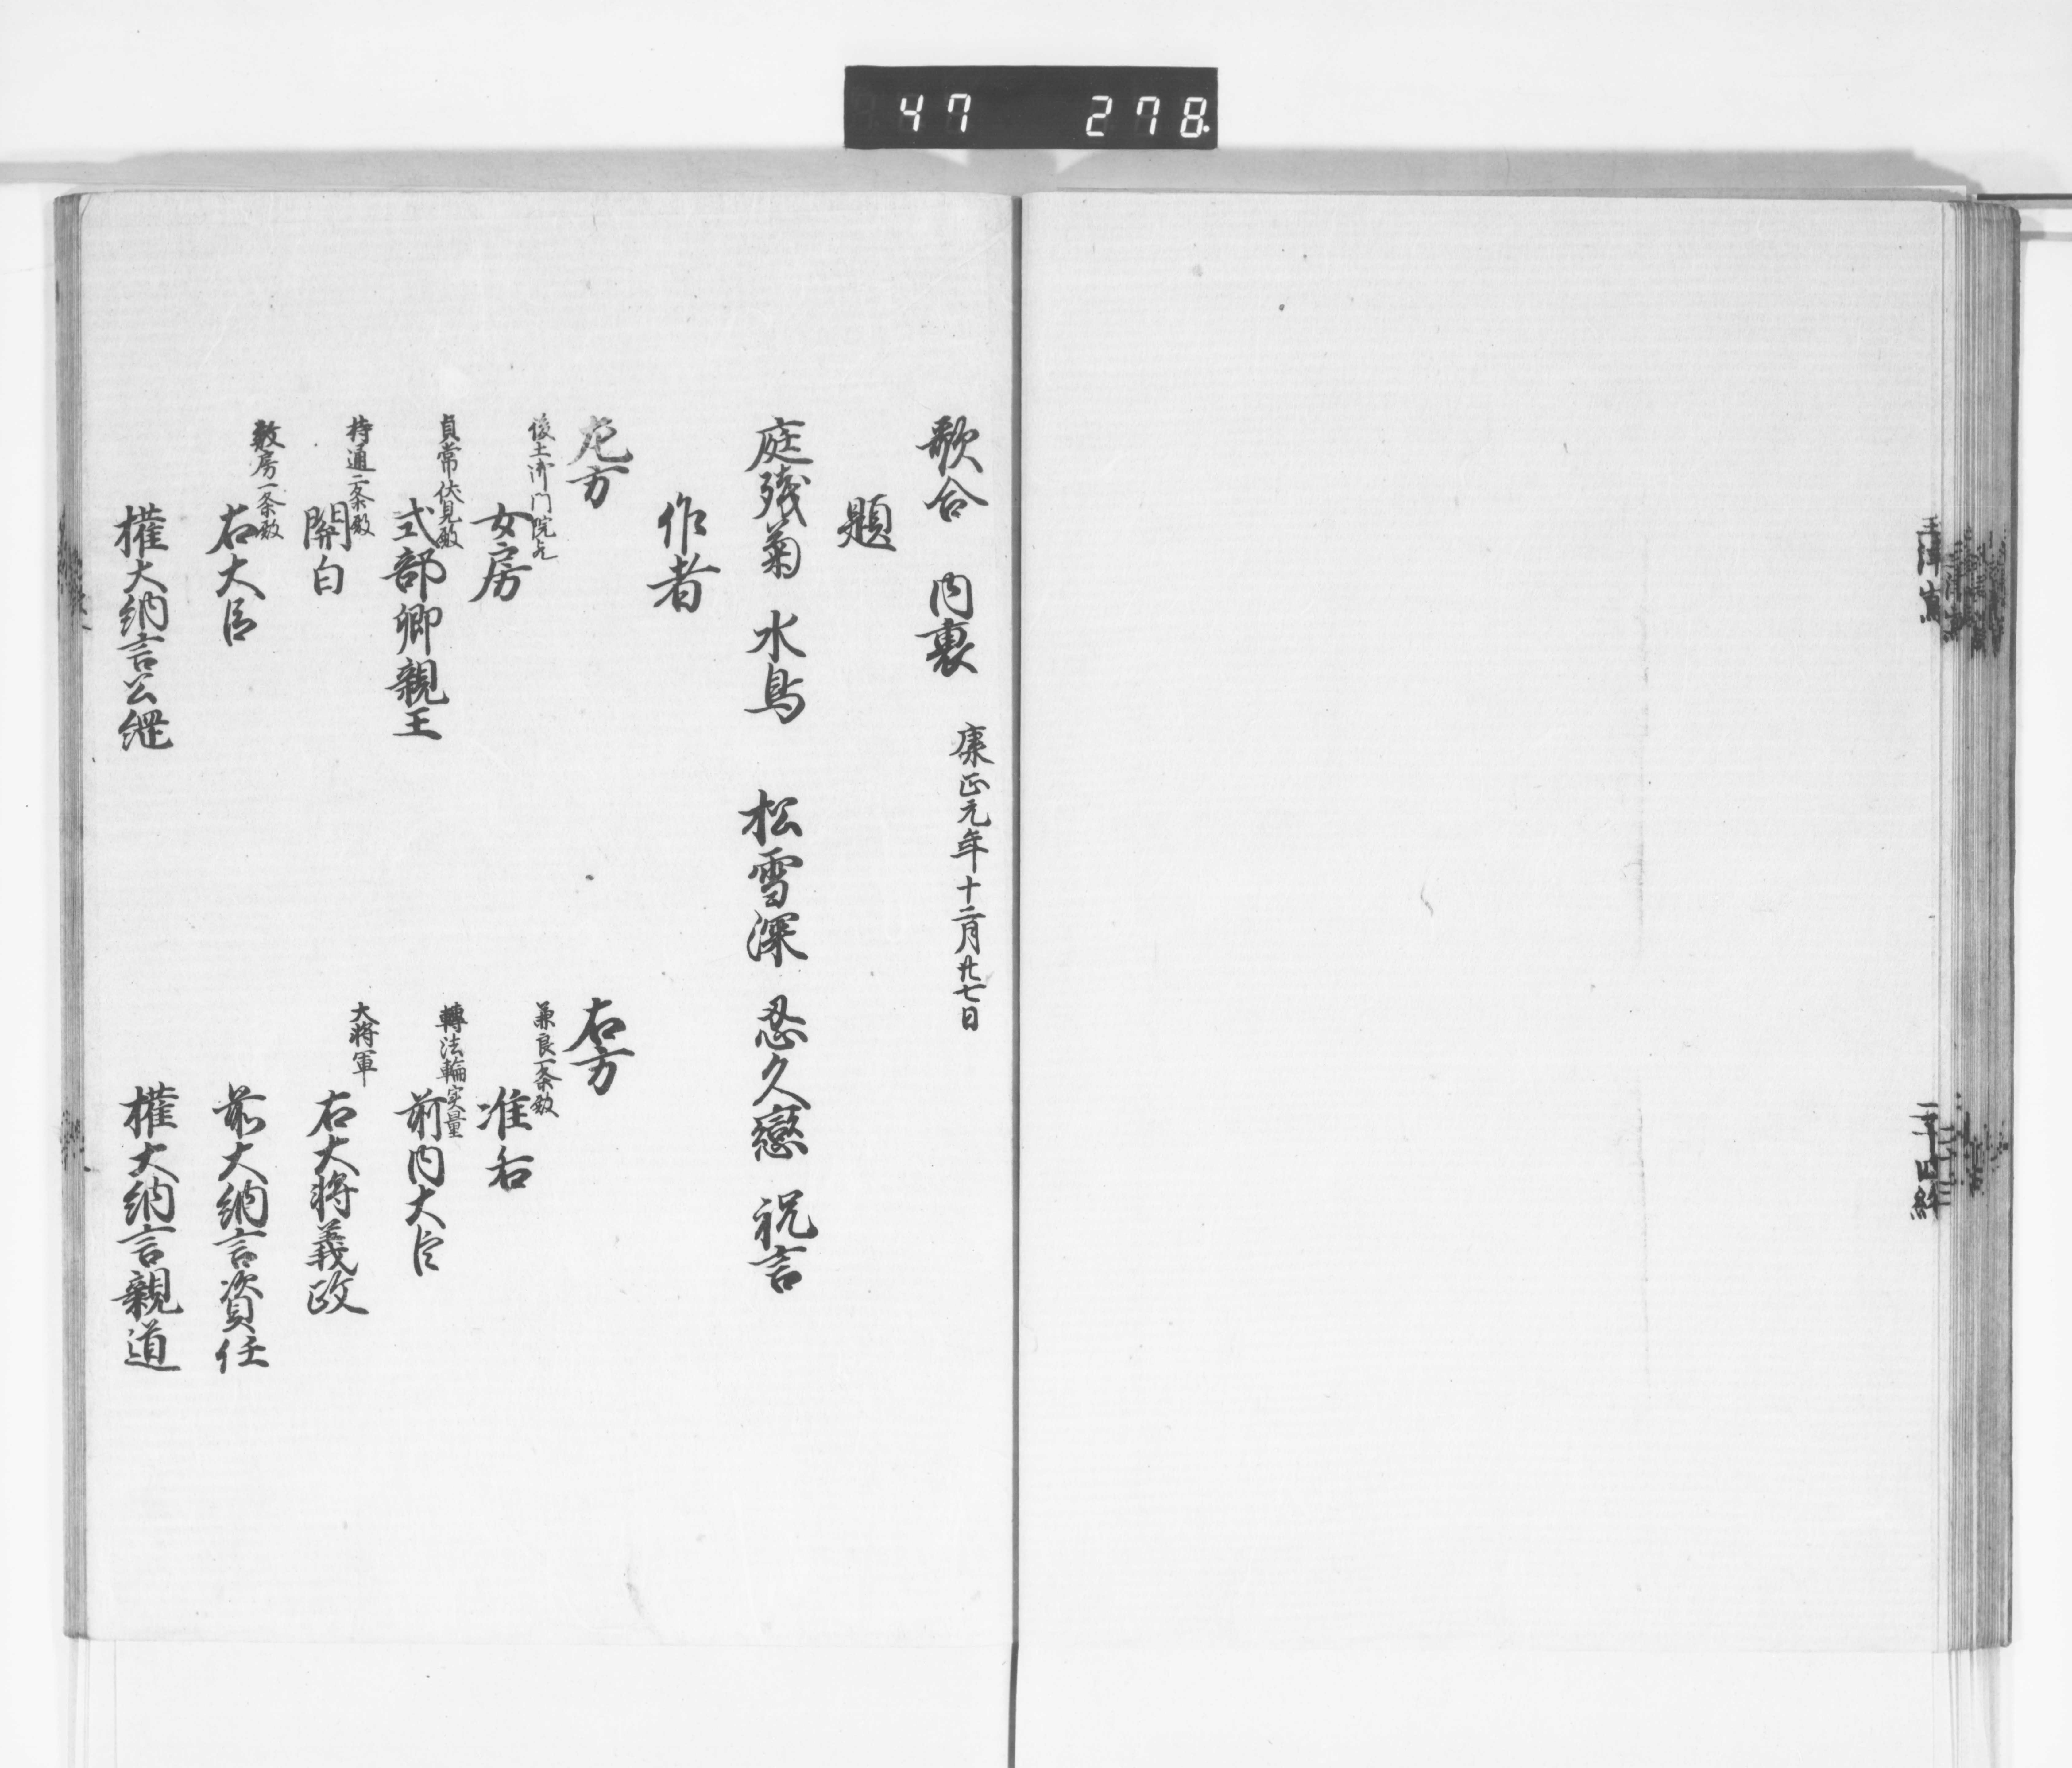 47 278
歌合 内裏 康正元年十二月廿七日
題
庭残菊 水鳥 松雪深 忍久戀 祝言
作者
左方 右方
後土御門院也 女房 兼良一条殿 准后
貞常伏見殿 式部卿親王 轉法輪実量 前内大臣
持通二条殿 關白 大将軍 右大将義政
教房一条殿 右大臣 前大納言資任
權大納言公綱 權大納言親通